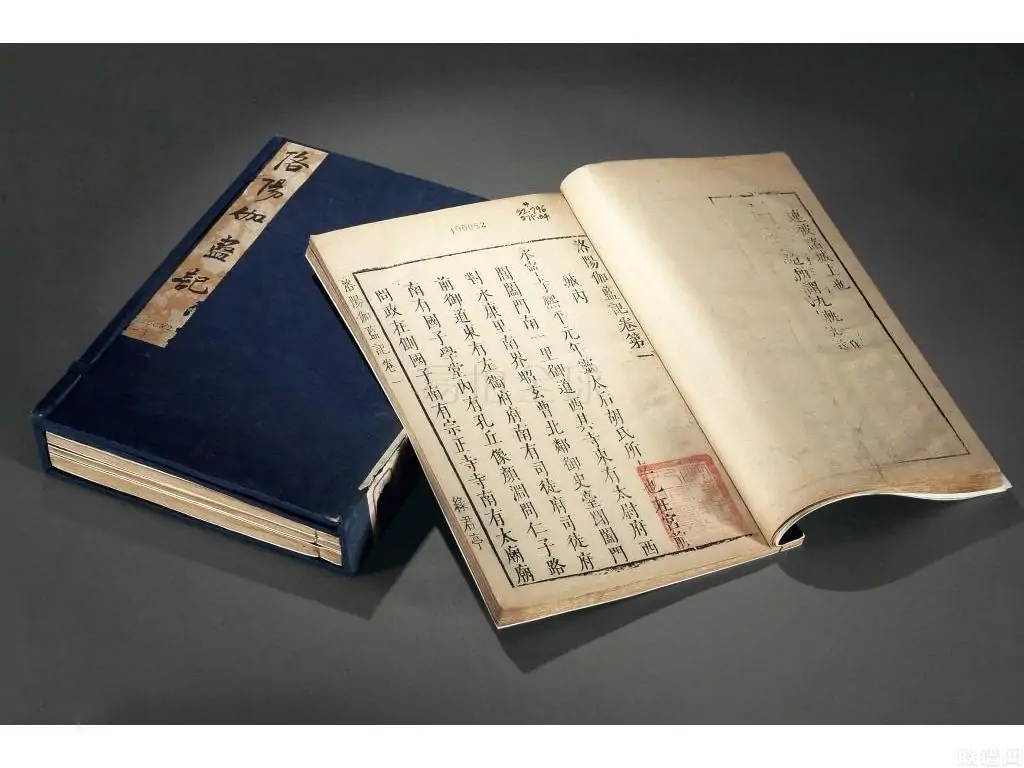 洛陽伽藍記
100052
洛陽伽藍記卷第一
城內
永寧寺熙平元年靈太后胡氏所立也在宮前
閶闔門南一里御道西其寺東有太尉府西
對永康里南界昭玄曹北鄰御史臺閶闔門
前御道東有左衛府府南有司徒府司徒府
南有國子學堂內有孔丘像顏淵問仁子路
問政在側國子南有宗正寺寺南有太廟廟
洛陽伽藍記卷一
綠君亭
族譜网